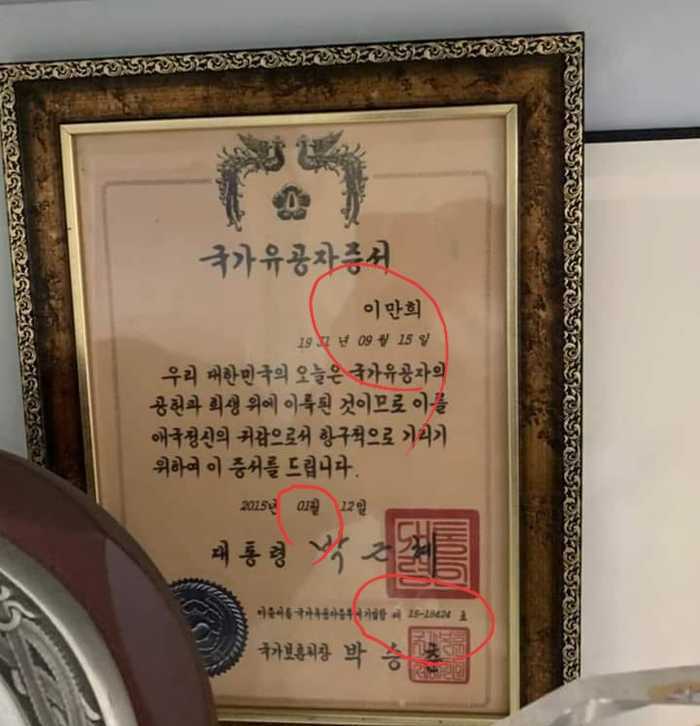 국가유공자증서
이만희
1931년 09월 15일
우리 대한민국의 오늘은 국가유공자의
공헌과 희생 위에 이룩된 것이므로 이를
애국정신의 귀감으로서 항구적으로 기리기
위하여 이 증서를 드립니다.
2015년 01월 12일
대통령 박근혜
이 증서를 국가유공자증부에 기입함 제 15-18424 호
국가보훈처장 박승춘